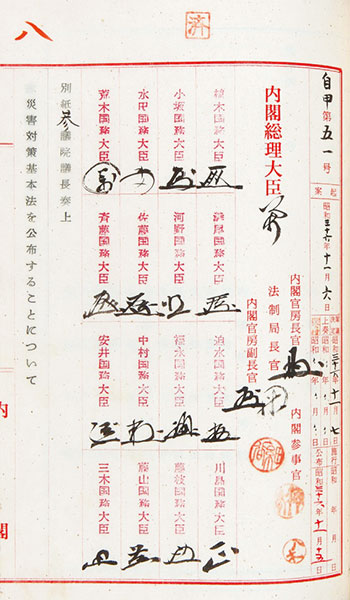 済
八
自甲第五一号
起案 昭和三十六年十一月六日
閣議決定昭和三十六年十一月七日
上奏昭和 年 月 日
施行昭和 年 月 日
公布昭和三十六年十一月十五日
内閣官房長官
法制局長官
内閣官房副長官
内閣参事官
内閣総理大臣
植木国務大臣
迫水国務大臣
川島国務大臣
小坂国務大臣
河野国務大臣
福永国務大臣
藤枝国務大臣
水田国務大臣
佐藤国務大臣
中村国務大臣
藤山国務大臣
荒木国務大臣
斉藤国務大臣
安井国務大臣
三木国務大臣
別紙参議院議長奏上
災害対策基本法を公布することについて
内閣